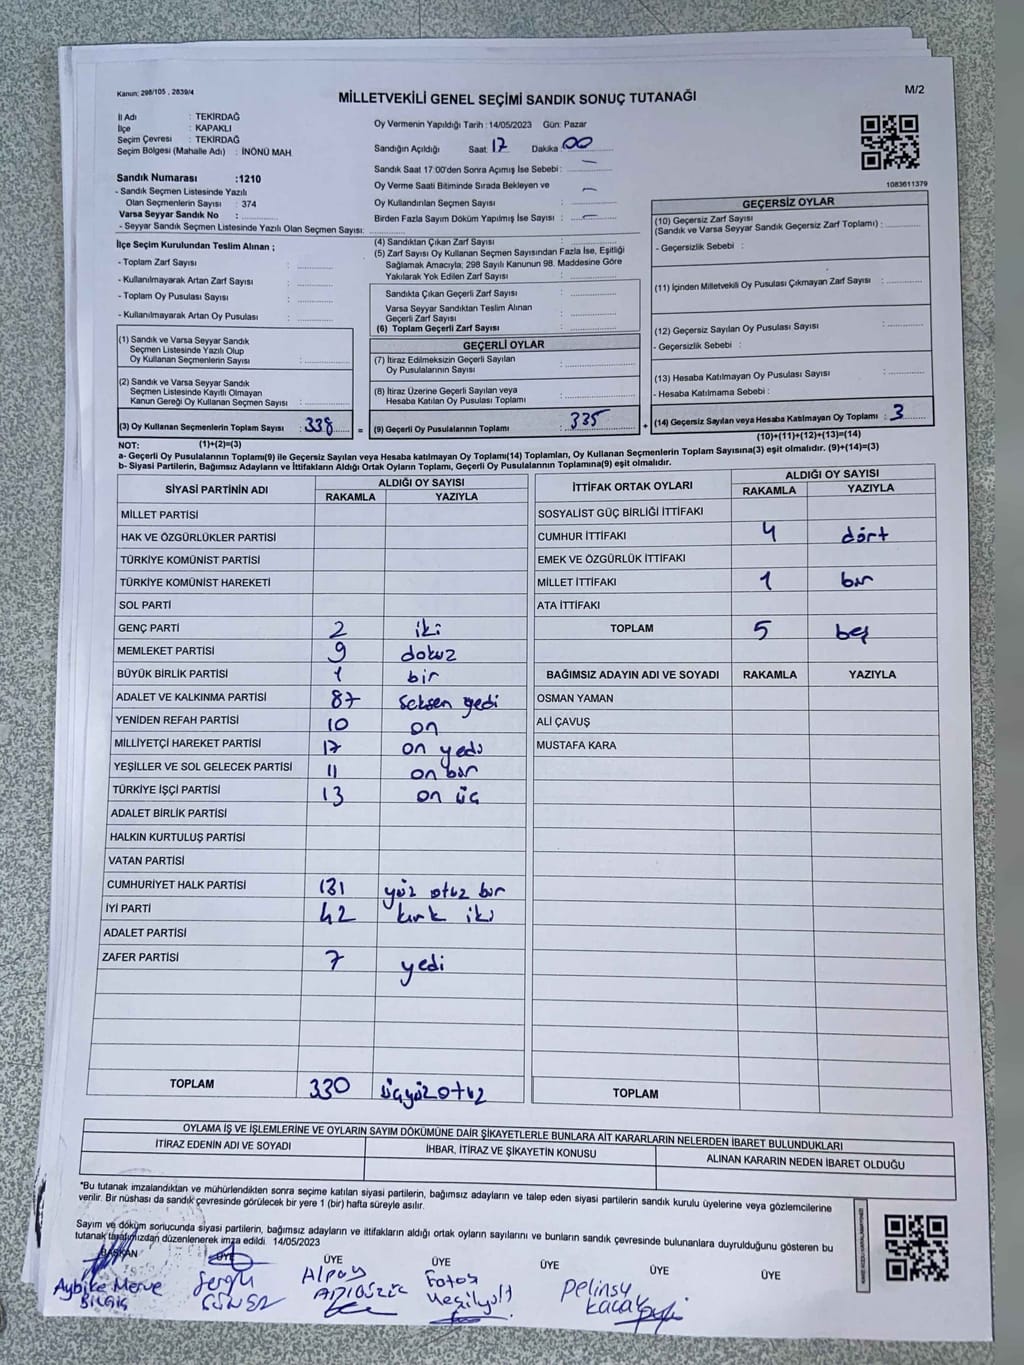 Kanun: 298/105 , 2839/4
MİLLETVEKİLİ GENEL SEÇİMİ SANDIK SONUÇ TUTANAĞI
M/2
İl Adı : TEKİRDAĞ
İlçe : KAPAKLI
Seçim Çevresi : TEKİRDAĞ
Seçim Bölgesi (Mahalle Adı) : İNÖNÜ MAH
Oy Vermenin Yapıldığı Tarih : 14/05/2023 Gün: Pazar
Sandığın Açıldığı Saat 17 Dakika 00
Sandık Saat 17 00'den Sonra Açımış İse Sebebi : —
Oy Verme Saati Bitiminde Sırada Bekleyen ve
Oy Kullandırılan Seçmen Sayısı : —
Birden Fazla Sayım Döküm Yapılmış İse Sayısı : —
1083611379
Sandık Numarası :1210
- Sandık Seçmen Listesinde Yazılı
Olan Seçmenlerin Sayısı : 374
Varsa Seyyar Sandık No :
- Seyyar Sandık Seçmen Listesinde Yazılı Olan Seçmen Sayısı:
İlçe Seçim Kurulundan Teslim Alınan ;
- Toplam Zarf Sayısı :
- Kullanılmayarak Artan Zarf Sayısı :
- Toplam Oy Pusulası Sayısı :
- Kullanılmayarak Artan Oy Pusulası :
(1) Sandık ve Varsa Seyyar Sandık
Seçmen Listesinde Yazılı Olup
Oy Kullanan Seçmenlerin Sayısı :
(2) Sandık ve Varsa Seyyar Sandık
Seçmen Listesinde Kayıtlı Olmayan
Kanun Gereği Oy Kullanan Seçmen Sayısı :
(3) Oy Kullanan Seçmenlerin Toplam Sayısı : 338 =
(4) Sandıktan Çıkan Zarf Sayısı :
(5) Zarf Sayısı Oy Kullanan Seçmen Sayısından Fazla İse, Eşitliği
Sağlamak Amacıyla; 298 Sayılı Kanunun 98. Maddesine Göre
Yakılarak Yok Edilen Zarf Sayısı :
Sandıkta Çıkan Geçerli Zarf Sayısı :
Varsa Seyyar Sandıktan Teslim Alınan
Geçerli Zarf Sayısı :
(6) Toplam Geçerli Zarf Sayısı :
GEÇERLİ OYLAR
(7) İtiraz Edilmeksizin Geçerli Sayılan
Oy Pusulalarının Sayısı :
(8) İtiraz Üzerine Geçerli Sayılan veya
Hesaba Katılan Oy Pusulası Toplamı :
(9) Geçerli Oy Pusulalarının Toplamı : 335 +
GEÇERSİZ OYLAR
(10) Geçersiz Zarf Sayısı
(Sandık ve Varsa Seyyar Sandık Geçersiz Zarf Toplamı) :
- Geçersizlik Sebebi :
(11) İçinden Milletvekili Oy Pusulası Çıkmayan Zarf Sayısı :
(12) Geçersiz Sayılan Oy Pusulası Sayısı :
- Geçersizlik Sebebi :
(13) Hesaba Katılmayan Oy Pusulası Sayısı :
- Hesaba Katılmama Sebebi :
(14) Geçersiz Sayılan veya Hesaba Katılmayan Oy Toplamı : 3
NOT: (1)+(2)=(3)
(10)+(11)+(12)+(13)=(14)
a- Geçerli Oy Pusulalarının Toplamı(9) ile Geçersiz Sayılan veya Hesaba katılmayan Oy Toplamı(14) Toplamları, Oy Kullanan Seçmenlerin Toplam Sayısına(3) eşit olmalıdır. (9)+(14)=(3)
b- Siyasi Partilerin, Bağımsız Adayların ve İttifakların Aldığı Ortak Oyların Toplamı, Geçerli Oy Pusulalarının Toplamına(9) eşit olmalıdır.
SİYASİ PARTİNİN ADI ALDIĞI OY SAYISI
RAKAMLA YAZIYLA
MİLLET PARTİSİ
HAK VE ÖZGÜRLÜKLER PARTİSİ
TÜRKİYE KOMÜNİST PARTİSİ
TÜRKİYE KOMÜNİST HAREKETİ
SOL PARTİ
GENÇ PARTİ 2 iki
MEMLEKET PARTİSİ 9 dokuz
BÜYÜK BİRLİK PARTİSİ 1 bir
ADALET VE KALKINMA PARTİSİ 87 seksen yedi
YENİDEN REFAH PARTİSİ 10 on
MİLLİYETÇİ HAREKET PARTİSİ 17 on yedi
YEŞİLLER VE SOL GELECEK PARTİSİ 11 on bir
TÜRKİYE İŞÇİ PARTİSİ 13 on üç
ADALET BİRLİK PARTİSİ
HALKIN KURTULUŞ PARTİSİ
VATAN PARTİSİ
CUMHURİYET HALK PARTİSİ 131 yüz otuz bir
İYİ PARTİ 42 kırk iki
ADALET PARTİSİ
ZAFER PARTİSİ 7 yedi
TOPLAM 330 üçyüz otuz
İTTİFAK ORTAK OYLARI ALDIĞI OY SAYISI
RAKAMLA YAZIYLA
SOSYALİST GÜÇ BİRLİĞİ İTTİFAKI
CUMHUR İTTİFAKI 4 dört
EMEK VE ÖZGÜRLÜK İTTİFAKI
MİLLET İTTİFAKI 1 bir
ATA İTTİFAKI
TOPLAM 5 beş
BAĞIMSIZ ADAYIN ADI VE SOYADI RAKAMLA YAZIYLA
OSMAN YAMAN
ALİ ÇAVUŞ
MUSTAFA KARA
TOPLAM
OYLAMA İŞ VE İŞLEMLERİNE VE OYLARIN SAYIM DÖKÜMÜNE DAİR ŞİKAYETLERLE BUNLARA AİT KARARLARIN NELERDEN İBARET BULUNDUKLARI
İTİRAZ EDENİN ADI VE SOYADI İHBAR, İTİRAZ VE ŞİKAYETİN KONUSU ALINAN KARARIN NEDEN İBARET OLDUĞU
"Bu tutanak imzalandıktan ve mühürlendikten sonra seçime katılan siyasi partilerin, bağımsız adayların ve talep eden siyasi partilerin sandık kurulu üyelerine veya gözlemcilerine
verilir. Bir nüshası da sandık çevresinde görülecek bir yere 1 (bir) hafta süreyle asılır.
Sayım ve döküm sonucunda siyasi partilerin, bağımsız adayların ve ittifakların aldığı ortak oyların sayılarını ve bunların sandık çevresinde bulunanlara duyrulduğunu gösteren bu
tutanak tarafımızdan düzenlenerek imza edildi. 14/05/2023
BAŞKAN ÜYE ÜYE ÜYE ÜYE ÜYE ÜYE
Aybike Merve
BİLGİÇ
Sergü
Alpay
Fatoş
Yeşilyolt
Pelinsu